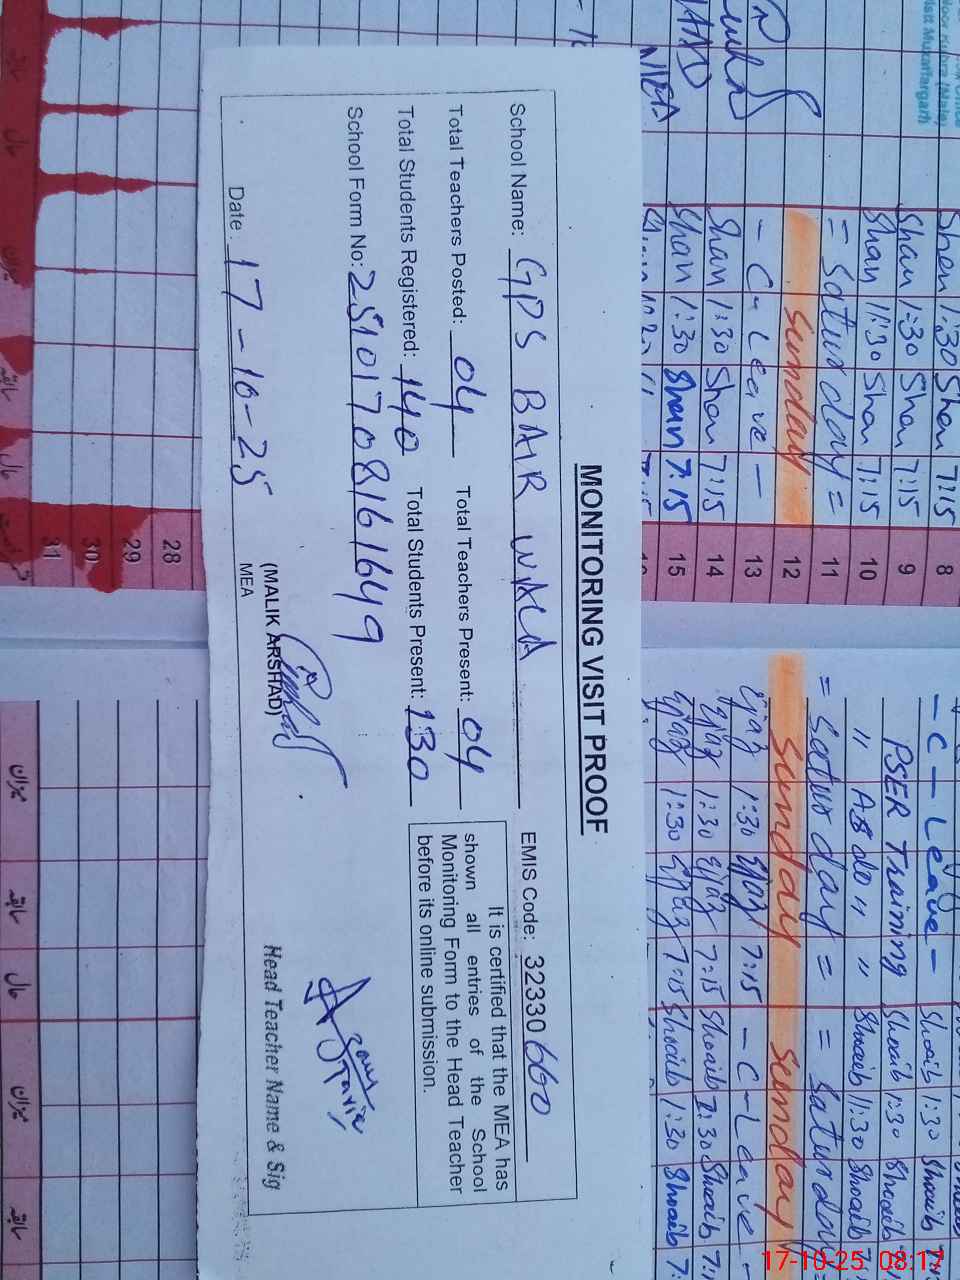 MONITORING VISIT PROOF
School Name: GPS BAIR WALA EMIS Code: 32330660
Total Teachers Posted: 04 Total Teachers Present: 04
Total Students Registered: 140 Total Students Present: 130
School Form No: 25101708161649
It is certified that the MEA has
shown all entries of the School
Monitoring Form to the Head Teacher
before its online submission.
Date: 17-10-25
(MALIK ARSHAD)
MEA
Head Teacher Name & Sig
Distt Muzaffargarh
Shan 1:30 Shan 7:15 8 - C - Leave - Shoaib 1:30 Shoaib
Shan 1:30 Shan 7:15 9 PSER Training Shoaib 1:30 Shoaib
Shan 11:30 Shan 7:15 10 " As do " " Shoaib 11:30 Shoaib
= Saturday = 11 = Saturday = = Saturday
Sunday 12 Sunday Sunday
- C - Leave - 13 Ejaz 1:30 Ejaz 7:15 - C - Leave -
Shan 1:30 Shan 7:15 14 Ejaz 1:30 Ejaz 7:15 Shoaib 1:30 Shoaib
Shan 1:30 Shan 7:15 15 Ejaz 1:30 Ejaz 7:15 Shoaib 1:30 Shoaib
28
29
30
31
میزان
سابقہ
حال
میزان
سابقہ
17-10-25 08:17